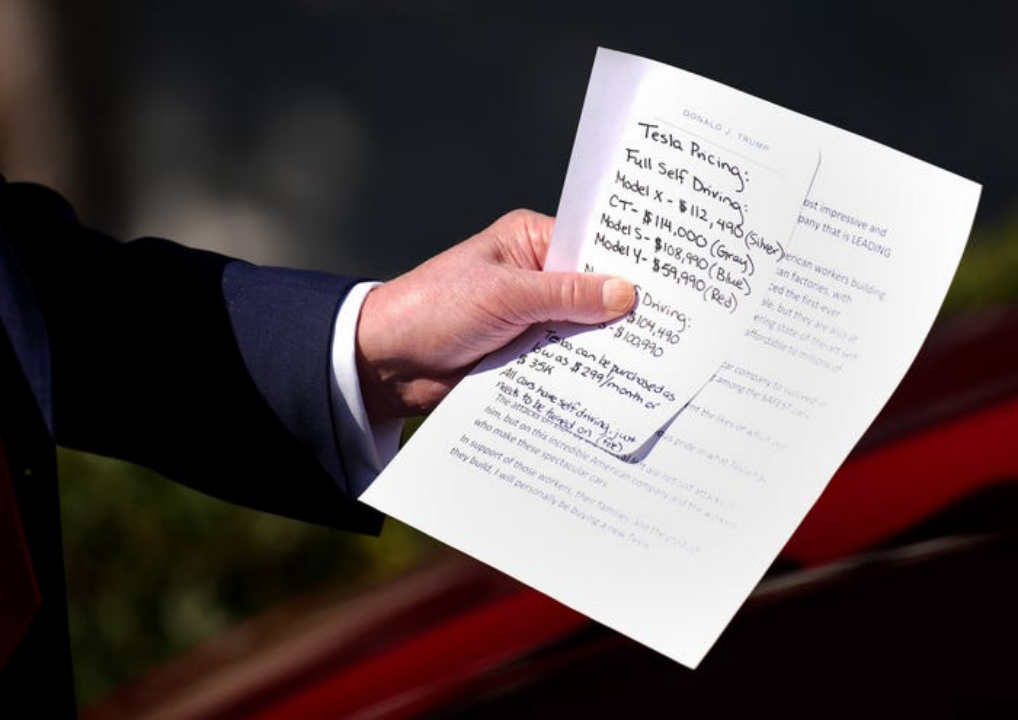 DONALD J. TRUMP
Tesla Pricing:
Full Self Driving:
Model X - $112,490 (Silver)
CT - $114,000 (Gray)
Model S - $108,990 (Blue)
Model Y - $59,990 (Red)
Driving:
$104,490
- $100,990
Teslas can be purchased as
low as $299/month or
$35K
All cars have self driving, just
needs to be turned on (fee)
ost impressive and
pany that is LEADING
erican workers building
an factories, with
ed the first-ever
le, but they are also at
ering state-of-the-art
affordable to millions of
ar company to succeed in
among the SAFEST cars
nt the likes of
pride in what Tesla has
The attacks on are not just
him, but on this incredible American company and the
who make these spectacular cars.
In support of those workers, their families, and the
they build, I will personally be buying a new Tesla